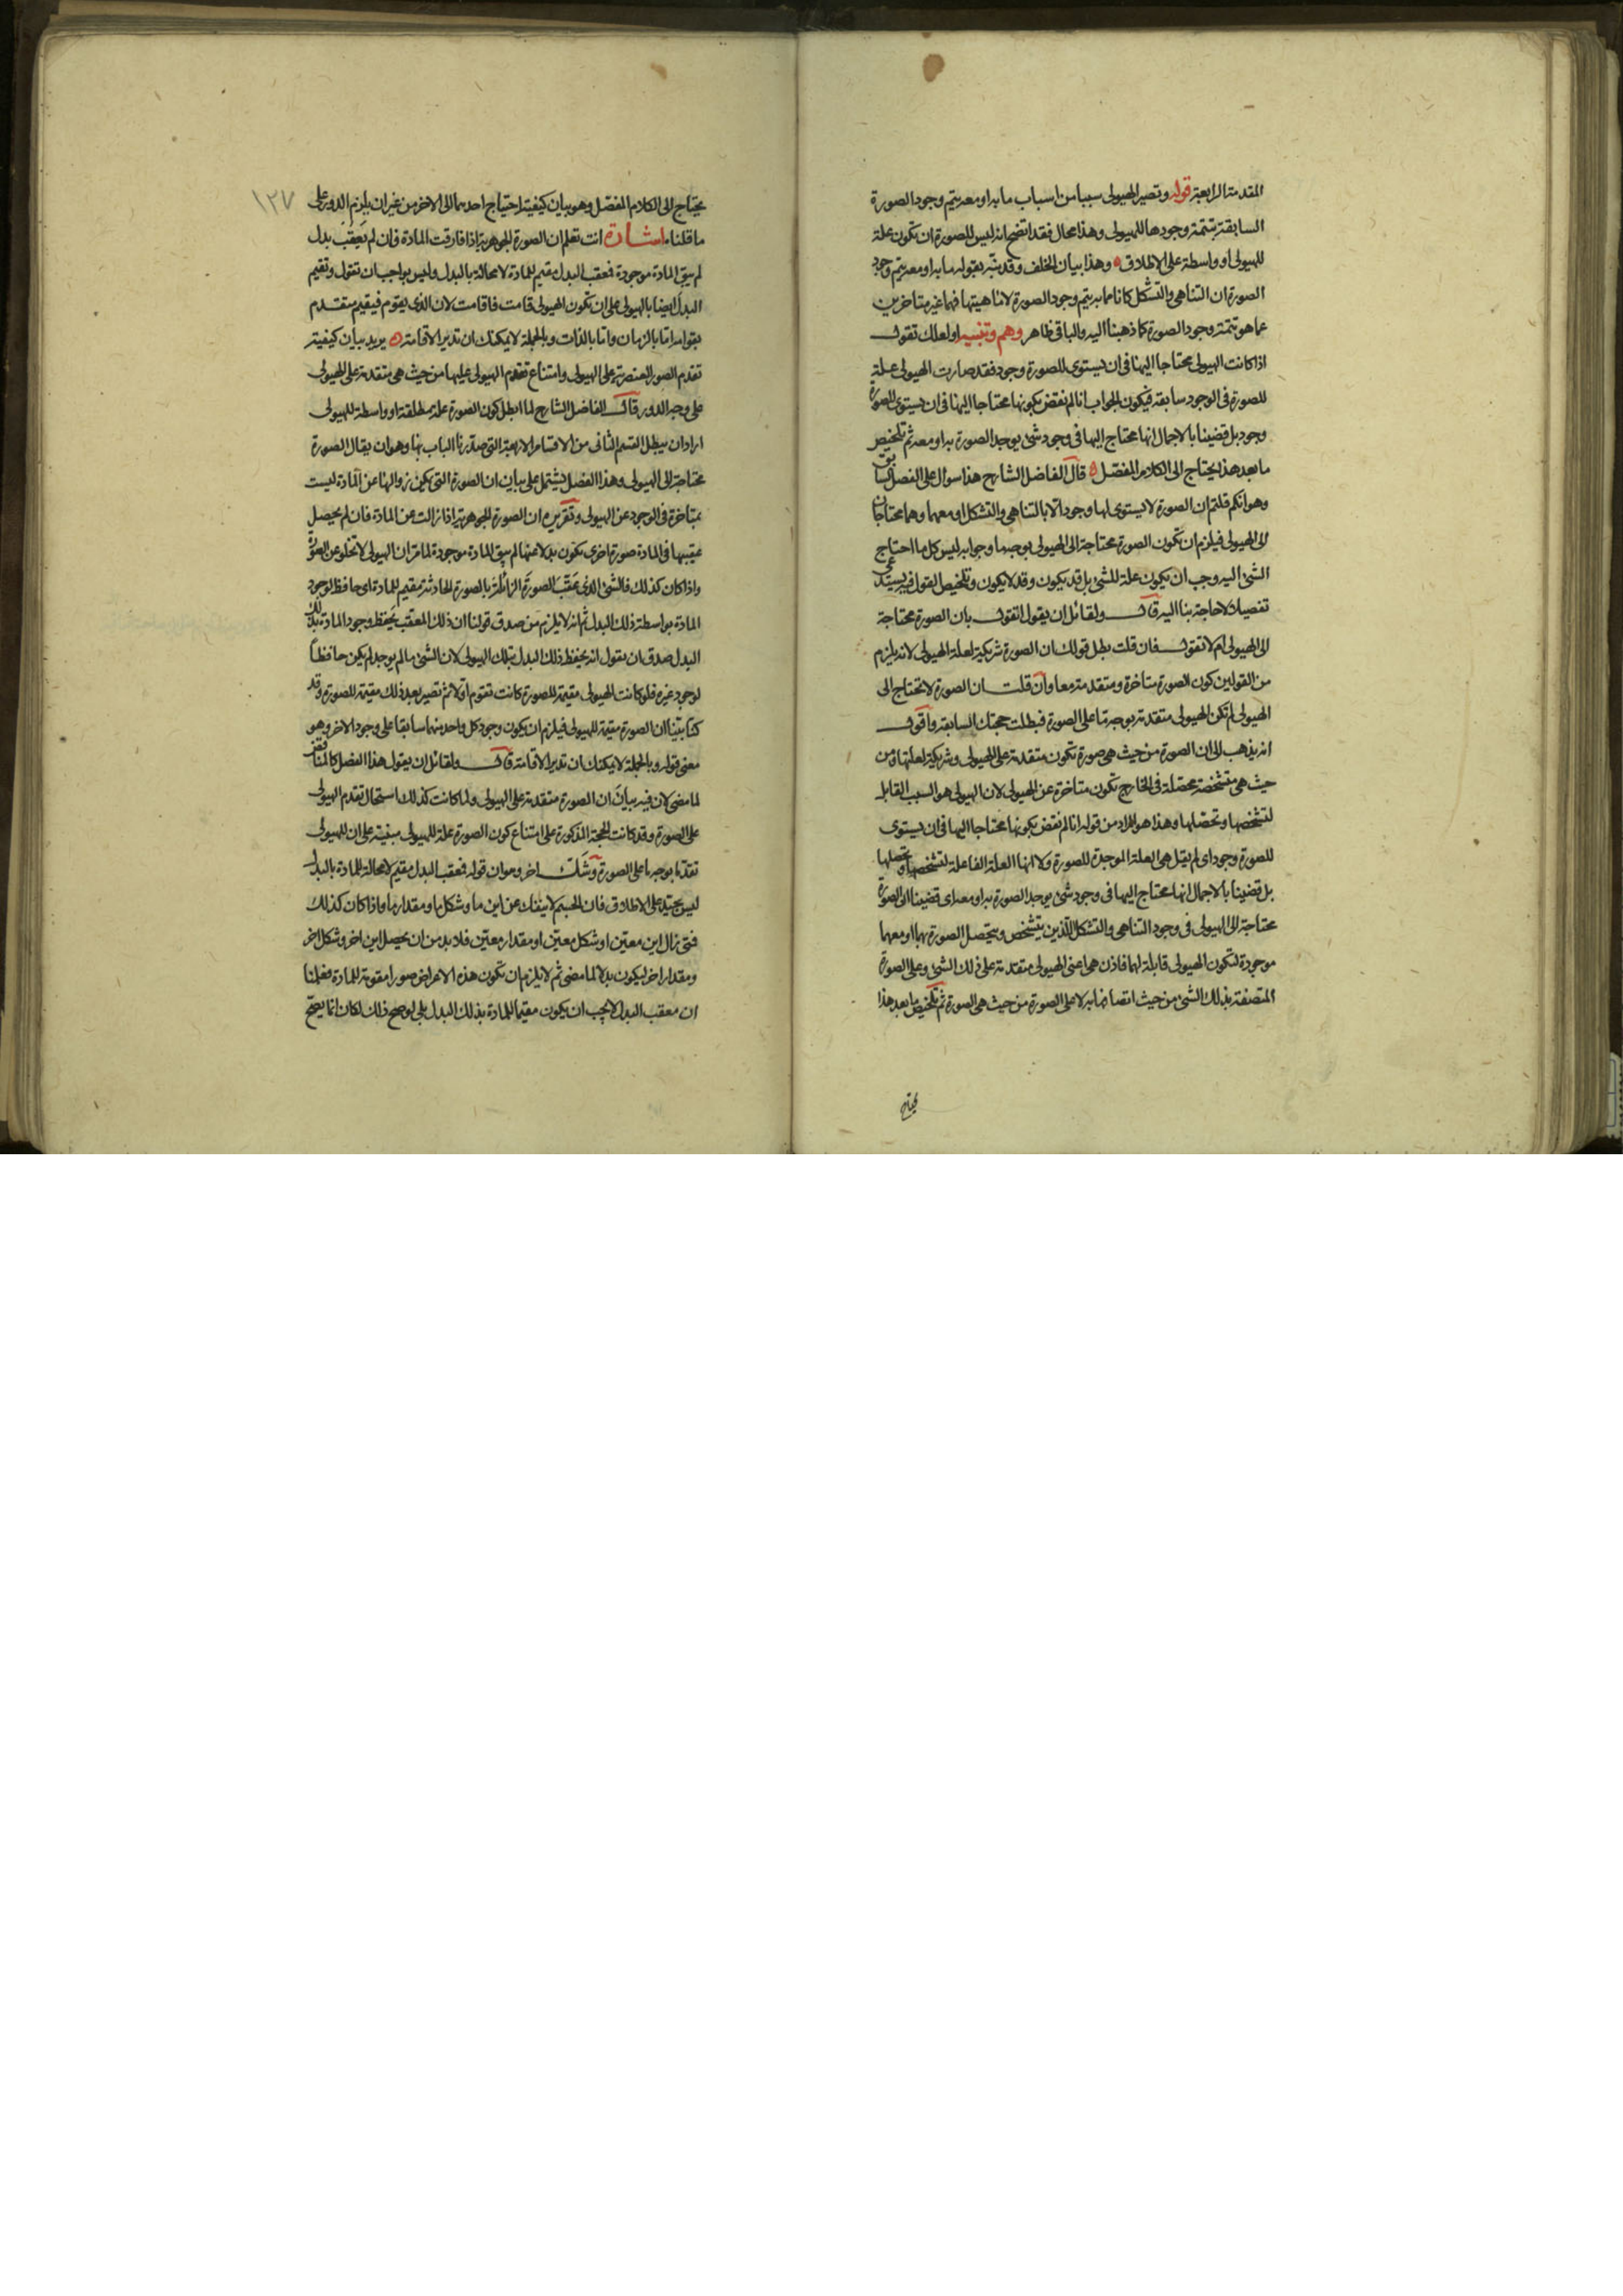 المقدمة الرابعة قوله وتصير الهيولى سببا من اسباب ما به او معه يتم وجود الصورة
السابقة بتتمة وجودها للهيولى وهذا محال فقد اتضح انه ليس للصورة ان تكون علة
للهيولى او واسطة على الاطلاق ه وهذا بيان الخلف وقد نبه بقوله ما به او معه يتم وجود
الصورة ان التناهى والتشكل كانا مما به يتم وجود الصورة لا ماهيتها فهما غير متاخرين
عما هو تتمة وجود الصورة كما ذهبنا اليه والباقى ظاهر وهم وتنبيه او لعلك تقول
اذا كانت الهيولى محتاجا اليها فى ان يستوى للصورة وجود فقد صارت الهيولى علة
للصورة فى الوجود سابقة فيكون الجواب انا لم نقض بكونها محتاجا اليها فى ان يستوى للصورة
وجود بل قضينا بالاجمال انها محتاج اليها فى وجود شئ يوجد الصورة به او معه ثم تلخيص
ما بعد هذا يحتاج الى الكلام المفصل ه قال الفاضل الشارح هذا سوال على الفصل السابق
وهو انكم قلتم ان الصورة لا يستوى لها وجود الا بالتناهى والتشكل او معهما وهما محتاجان
الى الهيولى فيلزم ان تكون الصورة محتاجة الى الهيولى بوجه ما وجوابه ليس كل ما احتاج
الشئ اليه وجب ان يكون علة للشئ بل قد يكون وقد لا يكون وتلخيص القول فيه يستدعى
تفصيلا لا حاجة بنا اليه قال ولقائل ان يقول اتقول بان الصورة محتاجة
الى الهيولى ام لا تقول فان قلت بطل قولك ان الصورة شريكة لعلة الهيولى لانه يلزم
من القولين كون الصورة متاخرة ومتقدمة معا وان قلت ان الصورة لا تحتاج الى
الهيولى لم تكن الهيولى متقدمة بوجه ما على الصورة فبطلت حجتك السابقة واقول
انه يذهب الى ان الصورة من حيث هى صورة تكون متقدمة على الهيولى وشريكة لعلتها ومن
حيث هى متشخصة محصلة فى الخارج تكون متاخرة عن الهيولى لان الهيولى هو السبب القابل
لتشخصها وتحصلها وهذا هو المراد من قوله انا لم نقض بكونها محتاجا اليها فى ان يستوى
للصورة وجود اى لم يقل هى العلة الموجدة للصورة ولا انها العلة الفاعلة لتشخصها وتحصلها
بل قضينا بالاجمال انها محتاج اليها فى وجود شئ يوجد الصورة به او معه اى قضينا ان الصورة
محتاجة الى الهيولى فى وجود التناهى والتشكل اللذين يتشخص ويتحصل الصورة بهما او معهما
موجودة لتكون الهيولى قابلة لهما فاذن هى اعنى الهيولى متقدمة على ذلك الشئ وعلى الصورة
المتصفة بذلك الشئ من حيث اتصافها به لا على الصورة من حيث هى الصورة ثم تلخيص ما بعد هذا
يحتاج
١٢٧
يحتاج الى الكلام المفصل وهو بيان كيفية احتياج احدهما الى الاخر من غير ان يلزم الدور على
ما قلناه اشارة انت تعلم ان الصورة الجوهرية اذا فارقت المادة فان لم يعقب بدل
لم يبق المادة موجودة فمعقب البدل مقيم للمادة لا محالة بالبدل وليس بواجب ان تقول وتقيم
البدل ايضا بالهيولى على ان تكون الهيولى قامت فاقامت لان الذى يقوم فيقيم متقدم
بقوامه اما بالزمان واما بالذات وبالجملة لا يمكنك ان تدير الاقامة ه يريد بيان كيفية
تقدم الصور العنصرية على الهيولى وامتناع تقدم الهيولى عليها من حيث هى متقدمة على الهيولى
على وجه الدور قال الفاضل الشارح لما ابطل كون الصورة علة مطلقة او واسطة للهيولى
اراد ان يبطل القسم الثانى من الاقسام الاربعة التى صدرنا الباب بها وهو ان يقال الصورة
محتاجة الى الهيولى وهذا الفصل يشتمل على بيان ان الصورة التى يمكن زوالها عن المادة ليست
بمتاخرة فى الوجود عن الهيولى وتقريره ان الصورة الجوهرية اذا زالت عن المادة فان لم يحصل
عقيبها فى المادة صورة اخرى تكون بدلا عنها لم يبق المادة موجودة لما مر ان الهيولى لا تخلو عن الصورة
واذا كان كذلك فالشئ الذى عقب الصورة الزائلة بالصورة الحادثة مقيم للمادة اى حافظ لوجود
المادة بواسطة ذلك البدل ثم انه لا يلزم من صدق قولنا ان ذلك المعقب يحفظ وجود المادة بذلك
البدل صدق ان نقول انه يحفظ ذلك البدل بتلك الهيولى لان الشئ ما لم يوجد لم يكن حافظاً
لوجود غيره فلو كانت الهيولى مقيمة للصورة كانت تقوم اولا ثم تصير بعد ذلك مقيمة للصورة وقد
كنا بينا ان الصورة مقيمة للهيولى فيلزم ان يكون وجود كل واحد منهما سابقا على وجود الاخر وهو
معنى قوله وبالجملة لا يمكنك ان تدير الاقامة قال ولقائل ان يقول هذا الفصل كالمناقض
لما مضى لان فيه بيان ان الصورة متقدمة على الهيولى ولما كانت كذلك استحال تقدم الهيولى
على الصورة وقد كانت الحجة المذكورة على امتناع كون الصورة علة للهيولى مبنية على ان للهيولى
تقدما بوجه ما على الصورة وشك اخر وهو ان قوله فمعقب البدل مقيم لا محالة للمادة بالبدل
ليس بجيد على الاطلاق فان الجسم لا ينفك عن اين ما وشكل ما ومقدار ما واذا كان كذلك
فمتى زال اين معين او شكل معين او مقدار معين فلا بد من ان يحصل اين اخر وشكل اخر
ومقدار اخر ليكون بدلا لما مضى ثم لا يلزم ان تكون هذه الاعراض صورا مقومة للمادة فعلمنا
ان معقب البدل لا يجب ان يكون مقيما للمادة بذلك البدل بلى لو صح ذلك لكان انما يصح